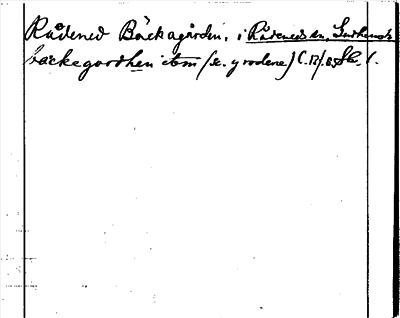 Rådened Bäckagården, i Rådened sn, Lindhemsh
backegordhen ibm (se. y rodene) C.12/.85 Sk. 1.